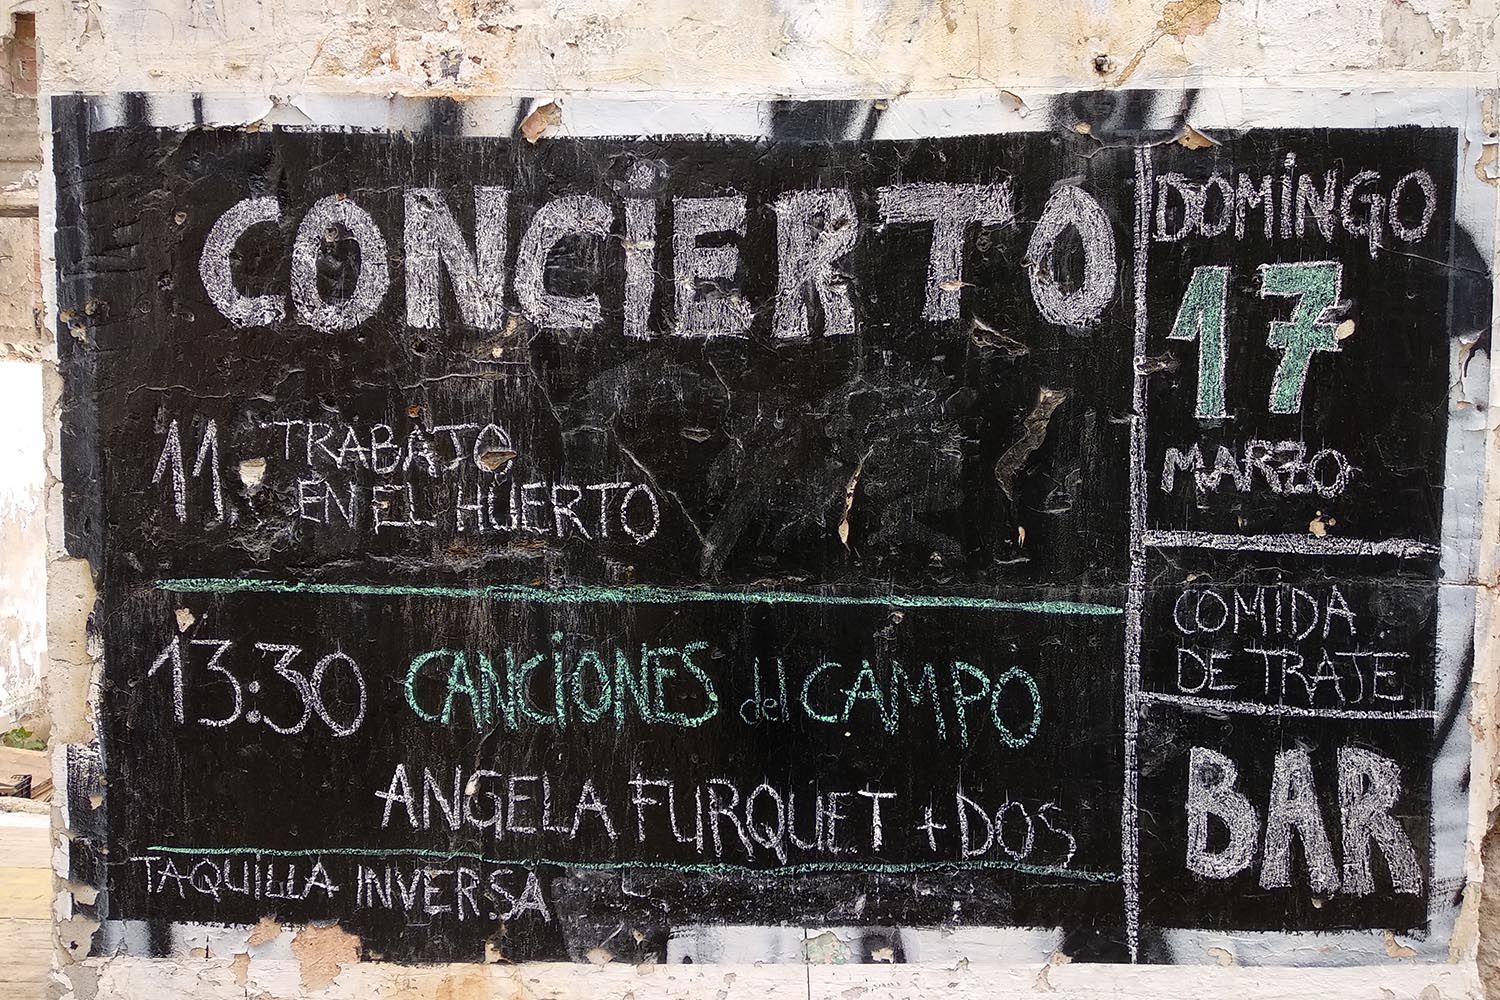 CONCIERTO
11. TRABAJO
EN EL HUERTO
13:30 CANCIONES del CAMPO
ANGELA FURQUET + DOS
TAQUILLA INVERSA
DOMINGO
17
MARZO
COMIDA
DE TRAJE
BAR